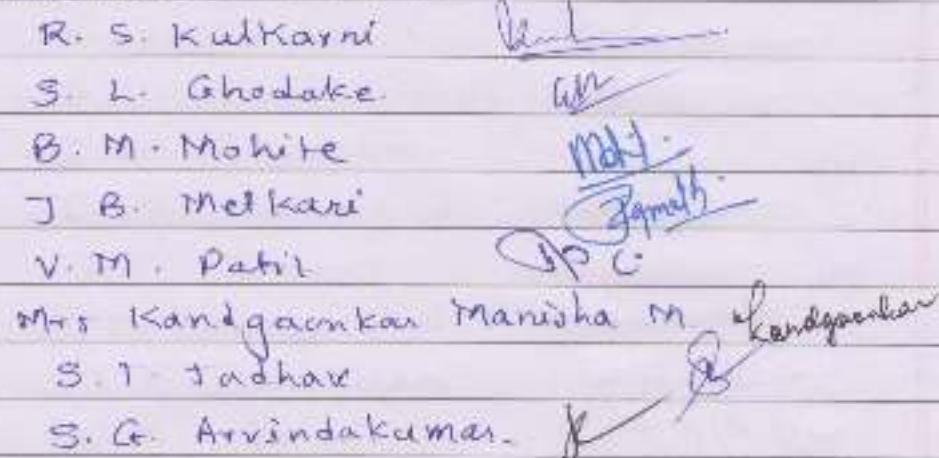 R. S. Kulkarni
S. L. Ghodake.
B. M. Mohite Mohit.
J B. Metkari
V. M. Patil
Mrs Kandgaonkar Manisha M Kandgaonkar
S. I. Jadhav
S. G. Arvindakumar.